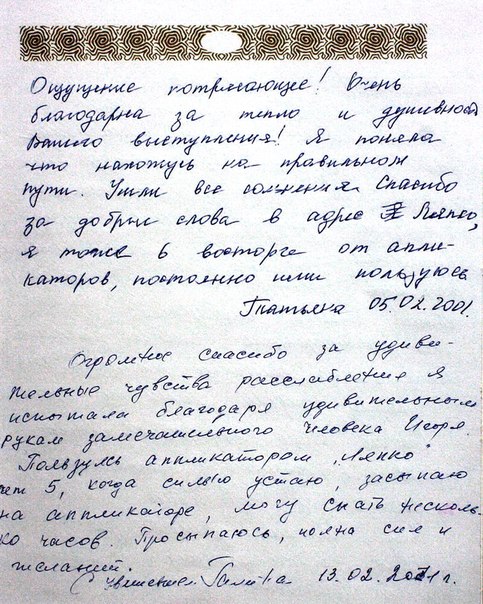 Ощущение потрясающее! Очень
благодарна за тепло и душевность
Вашего выступления! Я поняла
что нахожусь на правильном
пути. Ушли все сомнения. Спасибо
за добрые слова в адрес Ляпко,
я тоже в восторге от аппли-
каторов, постоянно ими пользуюсь
Татьяна 05.02.2001.
Огромное спасибо за удиви-
тельные чувства расслабления я
испытала благодаря удивительным
рукам замечательного человека Игоря.
Пользуясь аппликатором "Ляпко"
лет 5, когда сильно устаю, засыпаю
на аппликаторе, могу спать несколь-
ко часов. Просыпаюсь, полна сил и
желаний.
С уважением Галина 13.02.2001г.